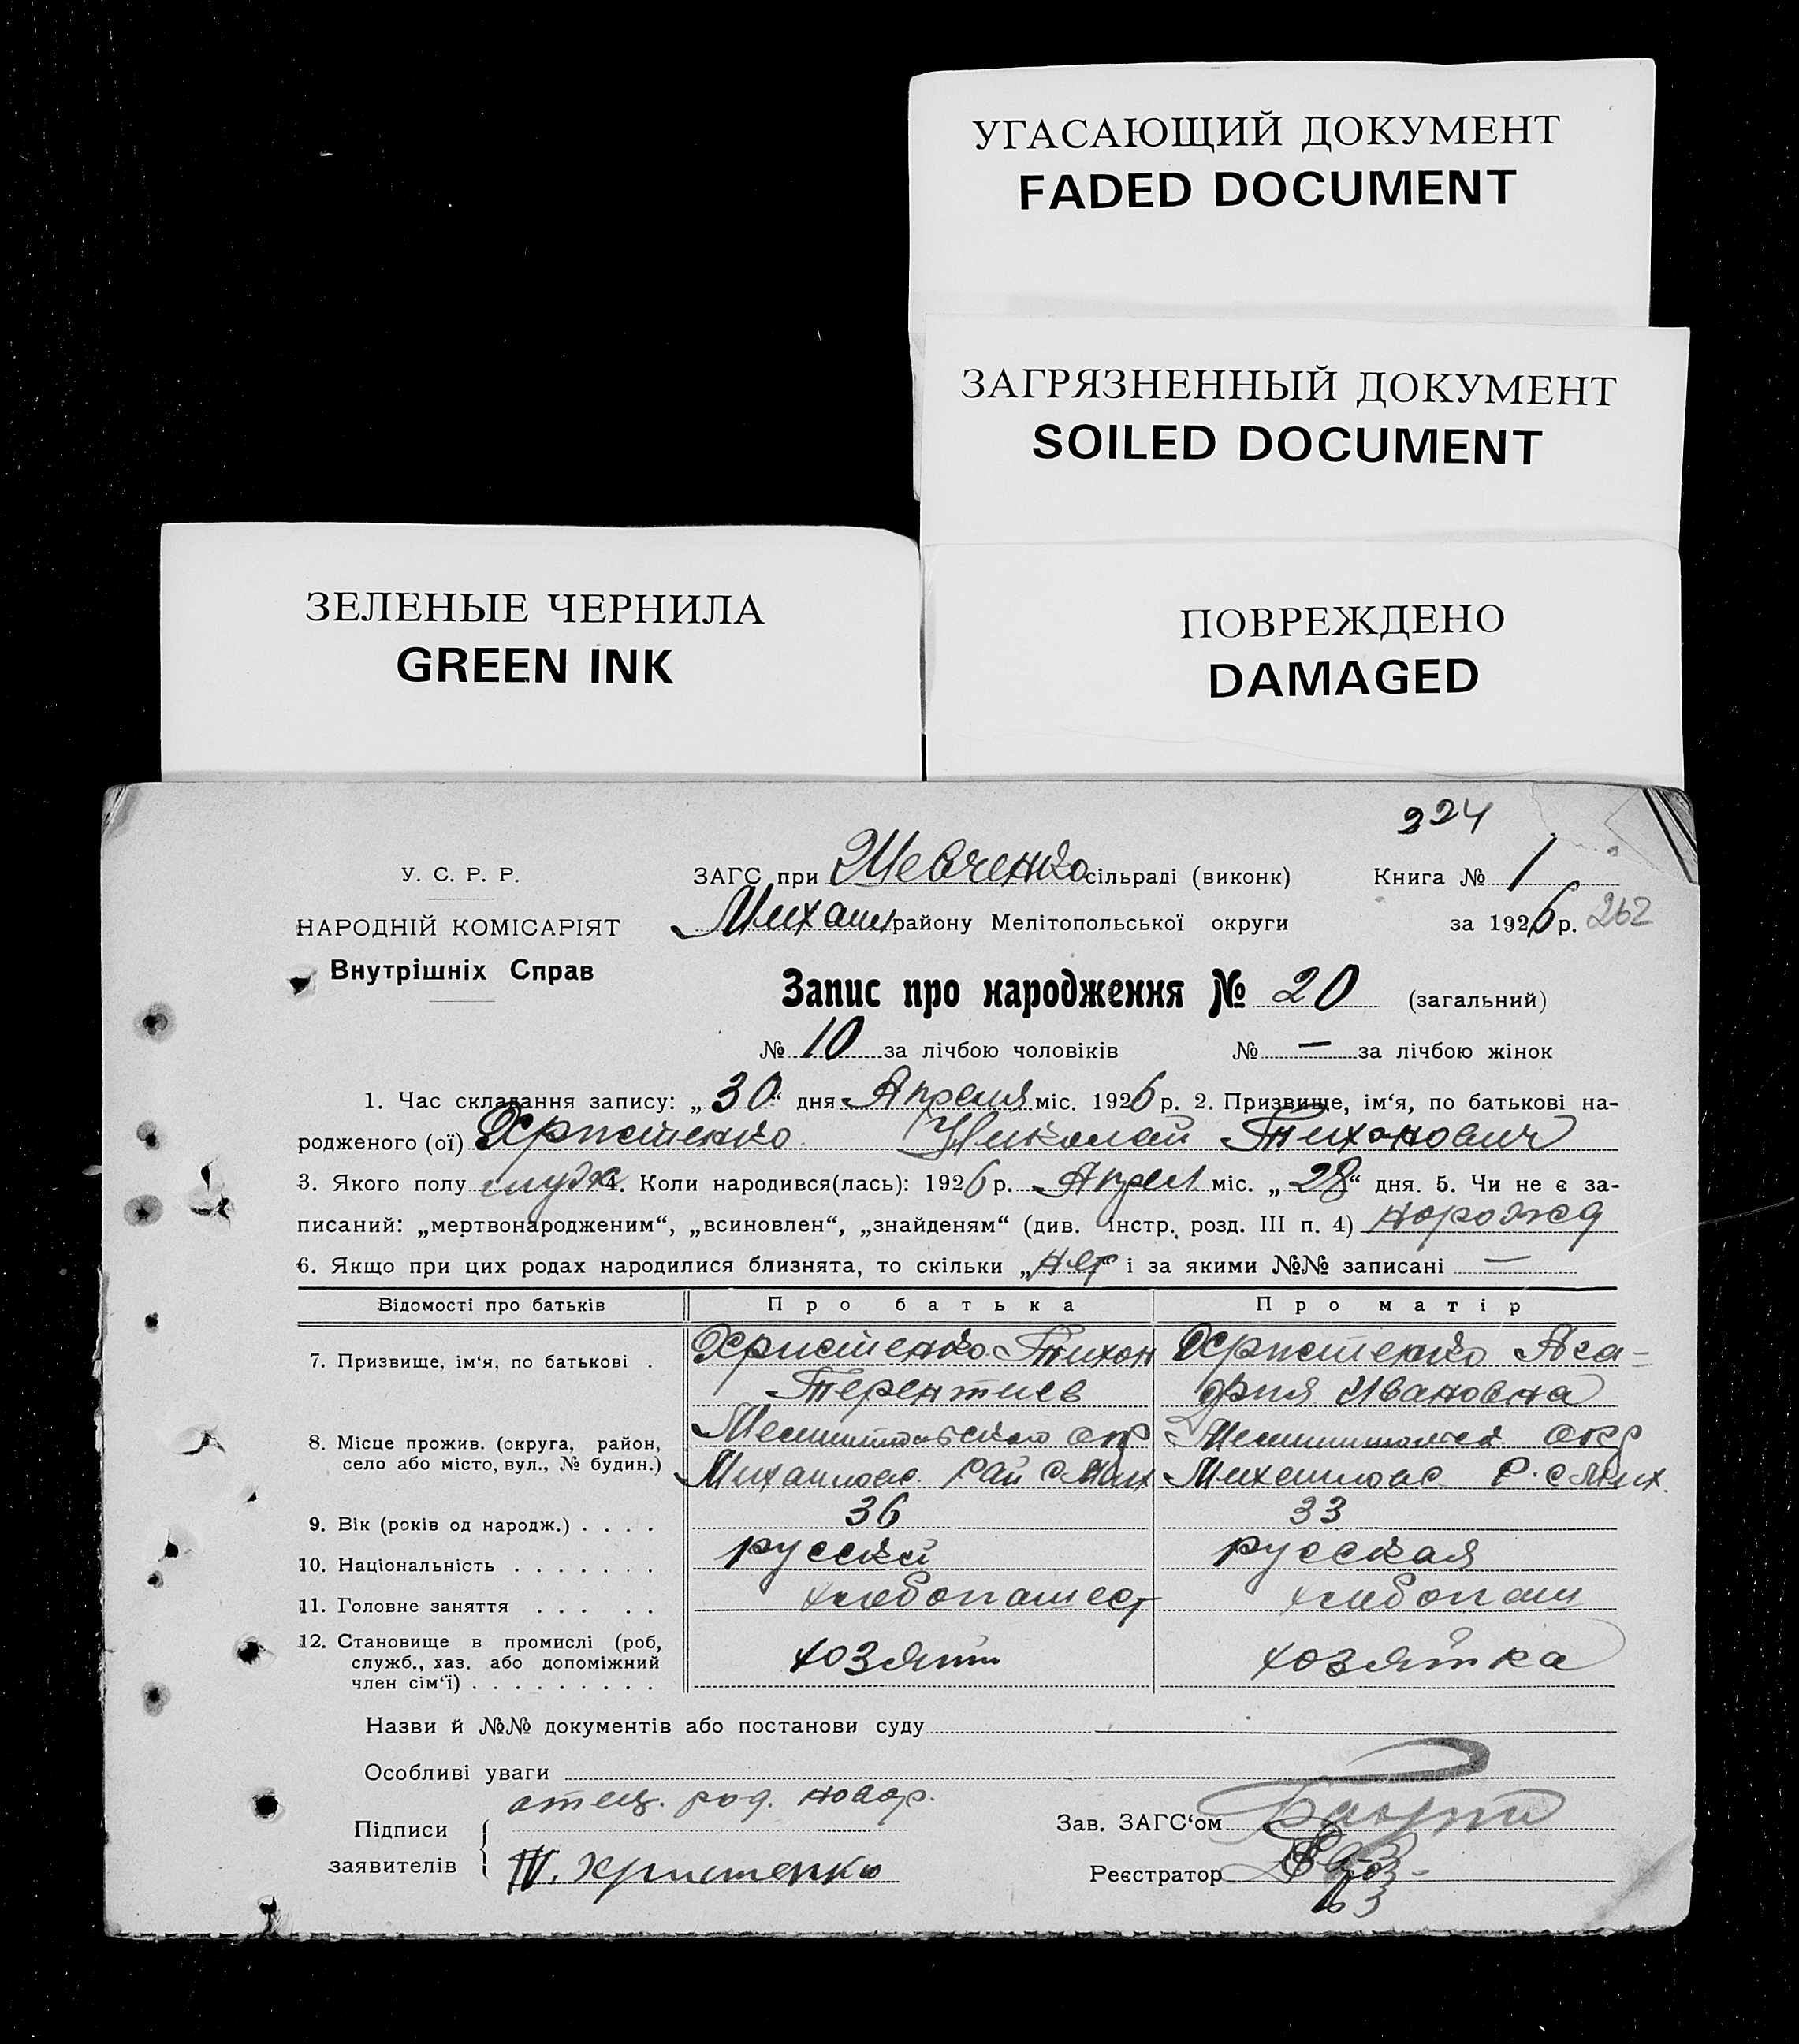 УГАСАЮЩИЙ ДОКУМЕНТ
FADED DOCUMENT
ЗАГРЯЗНЕННЫЙ ДОКУМЕНТ
SOILED DOCUMENT
ЗЕЛЕНЫЕ ЧЕРНИЛА
GREEN INK
ПОВРЕЖДЕНО
DAMAGED
224
У. С. Р. Р.
НАРОДНІЙ КОМІСАРІЯТ
Внутрішніх Справ
ЗАГС при Шевченко сільраді (виконк)
Михайл району Мелітопольської округи
Книга № 1
за 1926 р. 262
Запис про народження № 20 (загальний)
№ 10 за лічбою чоловіків № — за лічбою жінок
1. Час складання запису: „30“ дня Апреля міс. 1926 р. 2. Призвище, ім‘я, по батькові на-
родженого (ої) Христенко Николай Тихонович
3. Якого полу муж 4. Коли народився(лась): 1926 р. Апрел міс. „28“ дня. 5. Чи не є за-
писаний: „мертвонародженим“, „всиновлен“, „знайденям“ (див. інстр. розд. III п. 4)
6. Якщо при цих родах народилися близнята, то скільки „нет“ і за якими №№ записані —
Відомості про батьків Про батька Про матір
7. Призвище, ім‘я, по батькові . Христенко Тихон Христенко Ага-
Терентиев фия Ивановна
8. Місце прожив. (округа, район,
село або місто, вул., № будин.)
окр
Михайловс. рай с Мих Михайловс р. с Мих.
9. Вік (років од народж.) . . . . 36 33
10. Національність . . . . . . . русский русская
11. Головне заняття . . . . . хлебопашест хлебопаш
12. Становище в промислі (роб,
служб., хаз. або допоміжний
член сім‘ї) . . . . . . . . .
хозяин хозяйка
Назви й №№ документів або постанови суду
Особливі уваги
отец. род. новор.
Підписи
заявителів
Т. Христенко
Зав. ЗАГС‘ом
Реєстратор